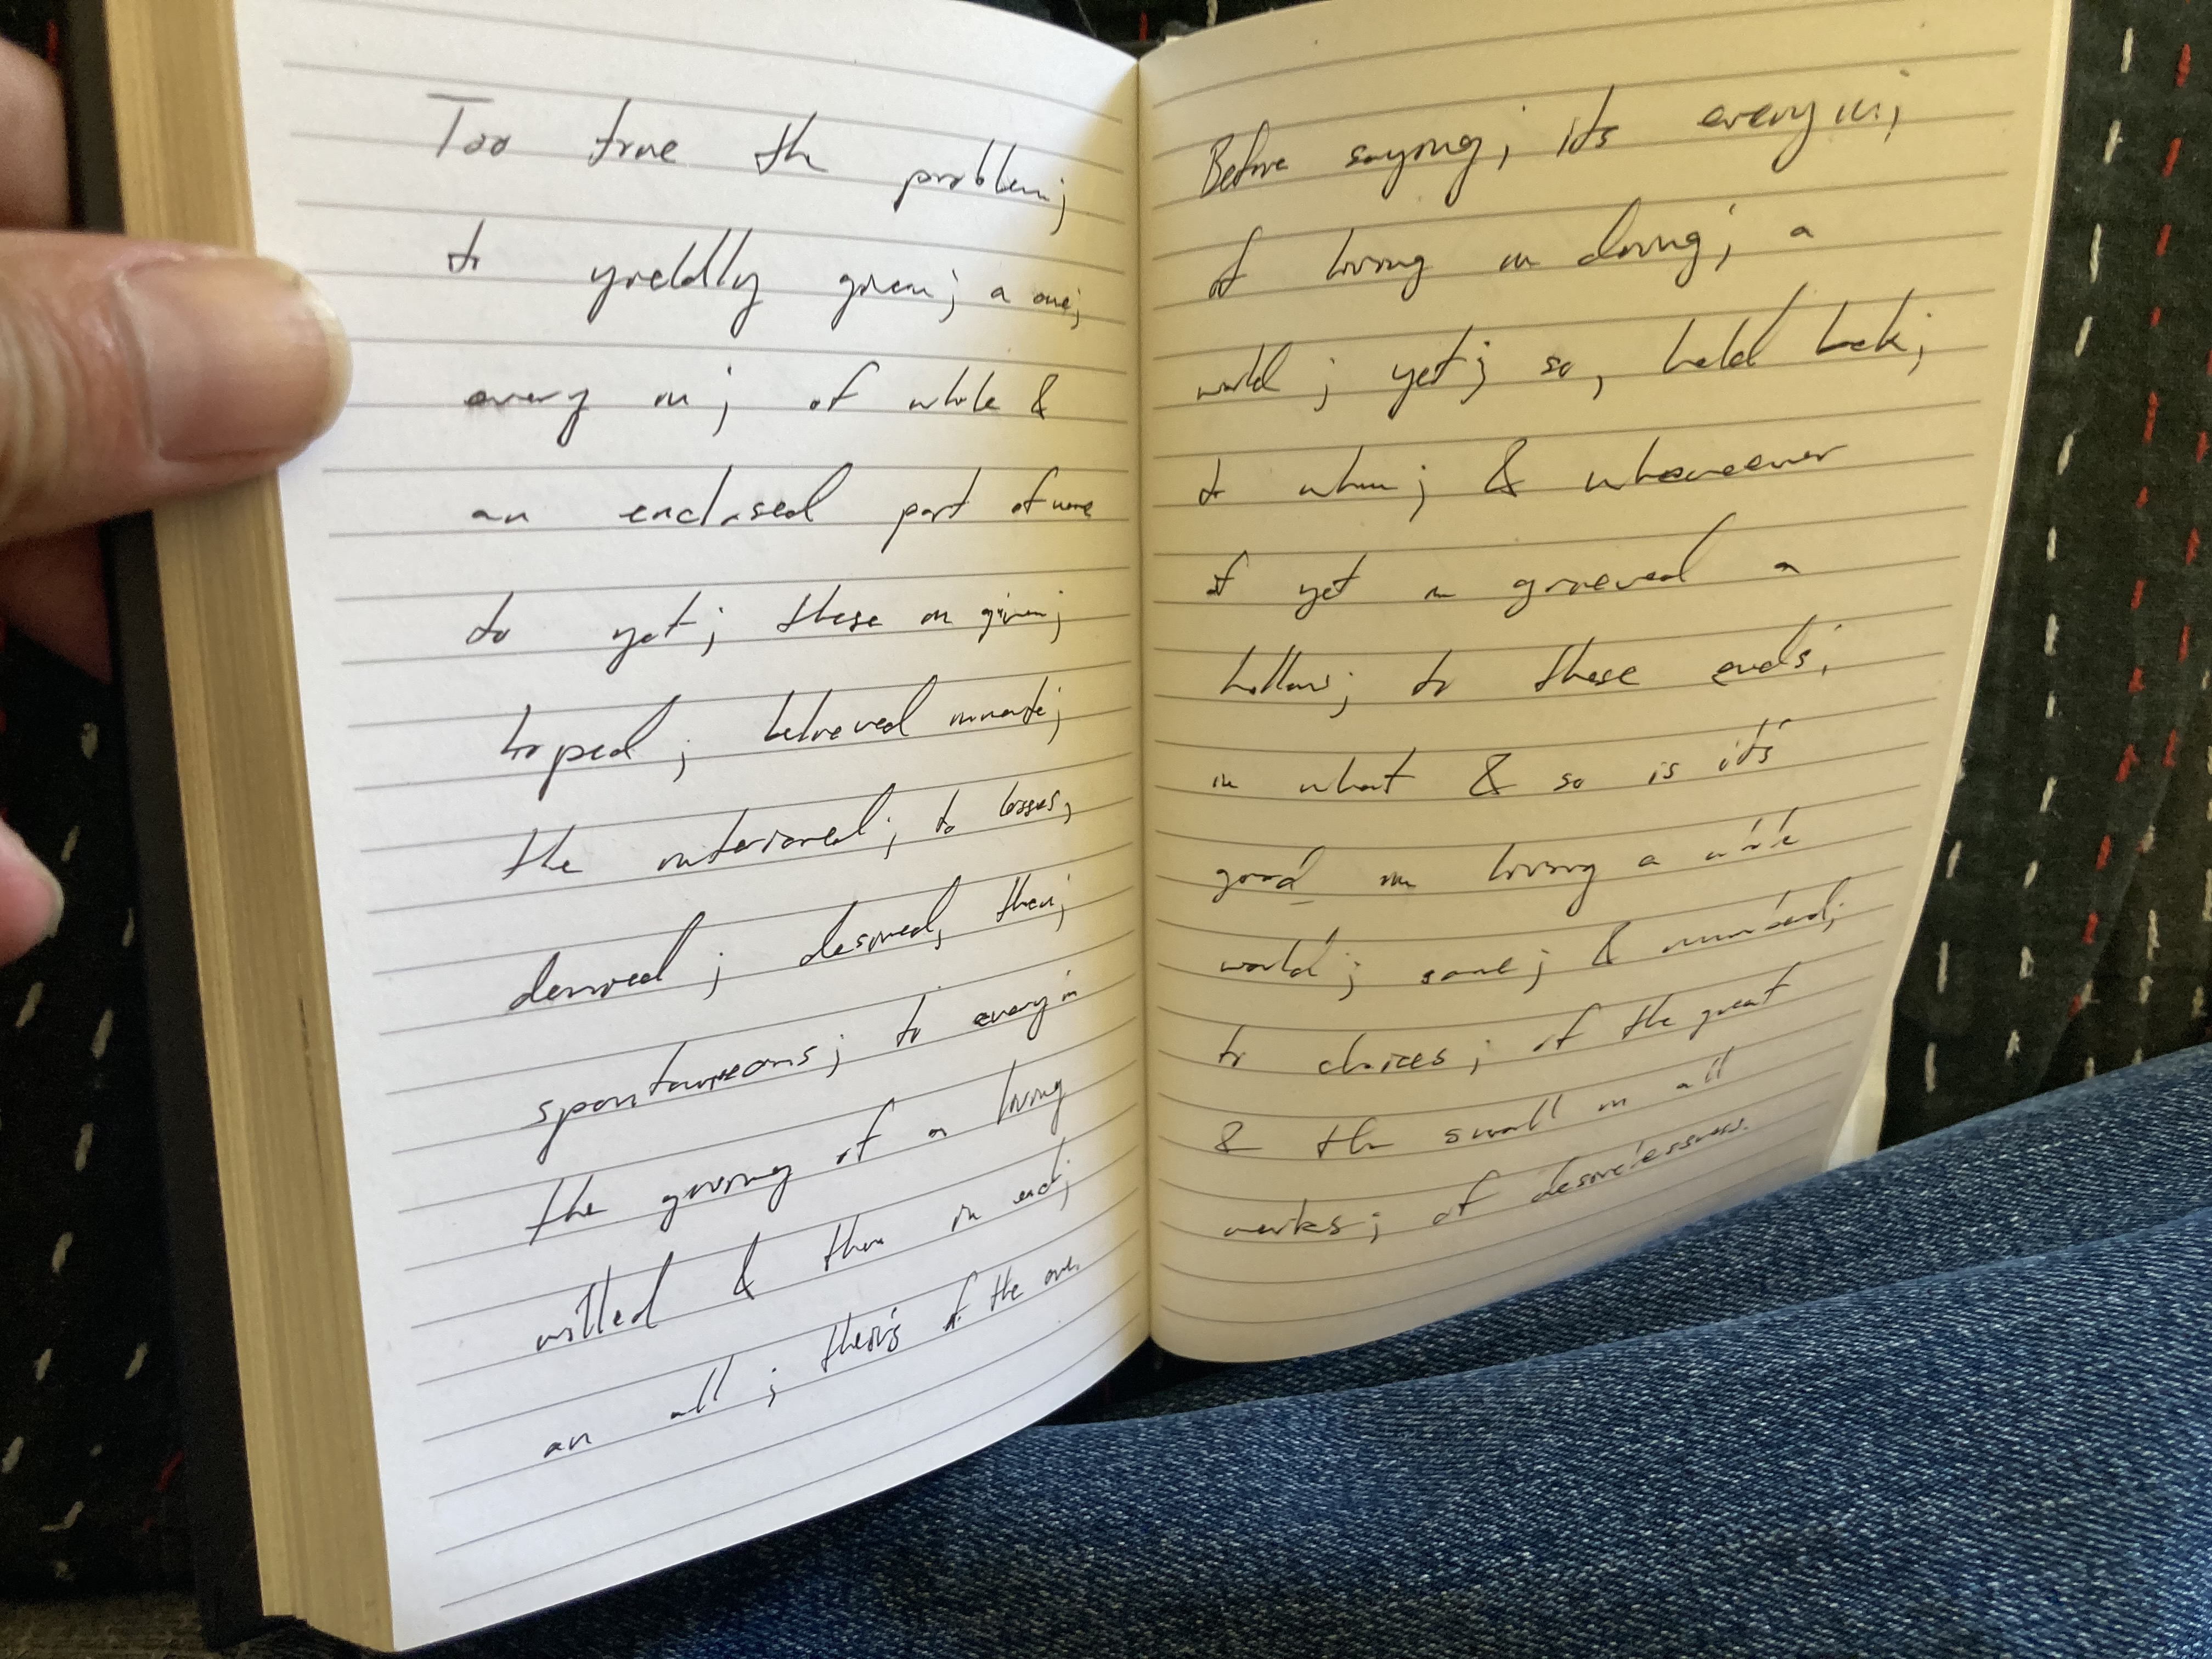 Too true the problem;
to yieldly given; a one;
every in; of whole &
an enclosed part of
to yet; these in given;
hoped; believed innate;
the interiored; to losses,
denied; desired, then;
spontaneous; to every in
the giving of a living
willed & then in end;
an all; theirs of the one.
Before saying; its every in;
of living in doing; a
world; yet; so, held back;
to whom; & whosoever
if yet in grieved a
hollow; to these ends;
in what & so is its
good in living a
world; same; &
to choices; of the great
& the small in all
works; of desirelessness.